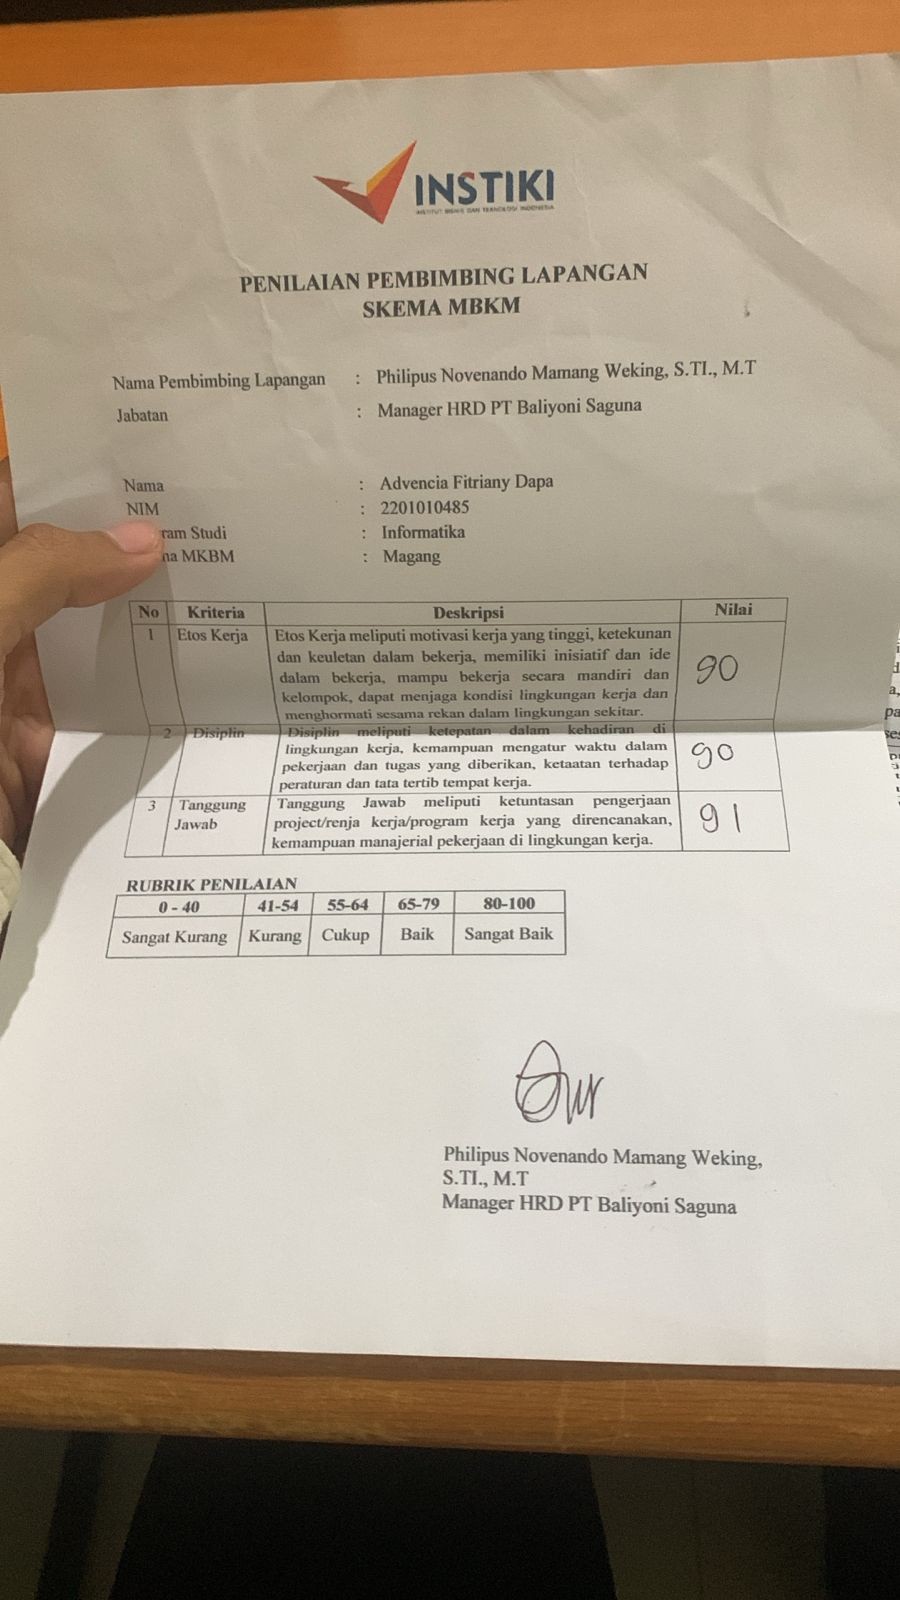 INSTIKI
INSTITUT BISNIS DAN TEKNOLOGI INDONESIA
PENILAIAN PEMBIMBING LAPANGAN
SKEMA MBKM
Nama Pembimbing Lapangan : Philipus Novenando Mamang Weking, S.TI., M.T
Jabatan : Manager HRD PT Baliyoni Saguna
Nama : Advencia Fitriany Dapa
NIM : 2201010485
ram Studi : Informatika
na MKBM : Magang
No Kriteria Deskripsi Nilai
1 Etos Kerja Etos Kerja meliputi motivasi kerja yang tinggi, ketekunan
dan keuletan dalam bekerja, memiliki inisiatif dan ide
dalam bekerja, mampu bekerja secara mandiri dan 90
kelompok, dapat menjaga kondisi lingkungan kerja dan
menghormati sesama rekan dalam lingkungan sekitar.
2 Disiplin Disiplin meliputi ketepatan dalam kehadiran di
lingkungan kerja, kemampuan mengatur waktu dalam 90
pekerjaan dan tugas yang diberikan, ketaatan terhadap
peraturan dan tata tertib tempat kerja.
3 Tanggung Tanggung Jawab meliputi ketuntasan pengerjaan
Jawab project/renja kerja/program kerja yang direncanakan, 91
kemampuan manajerial pekerjaan di lingkungan kerja.
RUBRIK PENILAIAN
0 - 40 41-54 55-64 65-79 80-100
Sangat Kurang Kurang Cukup Baik Sangat Baik
Philipus Novenando Mamang Weking,
S.TI., M.T
Manager HRD PT Baliyoni Saguna